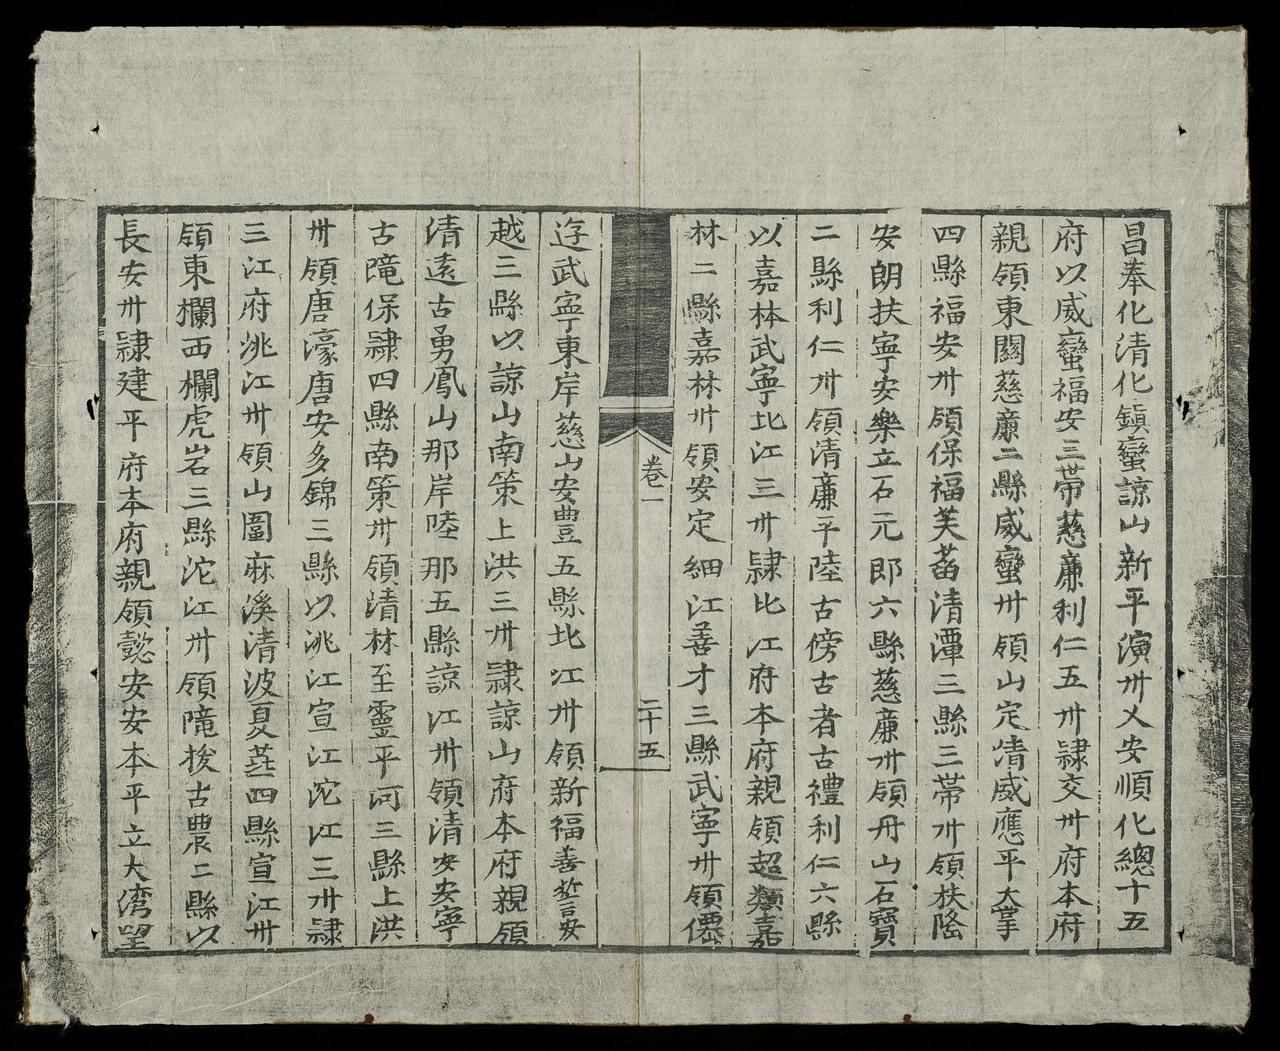 昌奉化清化鎮蠻諒山新平演州乂安順化總十五
府以威蠻福安三帶慈廉利仁五州隸交州府本府
親領東關慈廉二縣威蠻州領山定清威應平大掌
四縣福安州領保福芙蒥清潭三縣三帶州領扶隆
安朗扶寧安樂立石元郎六縣慈廉州領丹山石寶
二縣利仁州領清廉平陸古傍古者古禮利仁六縣
以嘉林武寧北江三州隸北江府本府親領超類嘉
林二縣嘉林州領安定細江善才三縣武寧州領僊
卷一
二十五
遊武寧東岸慈山安豊五縣北江州領新福善誓安
越三縣以諒山南策上洪三州隸諒山府本府親領
清遠古勇鳳山那岸陸那五縣諒江州領清安安寧
古隴保隸四縣南策州領清林至靈平河三縣上洪
州領唐濠唐安多錦三縣以洮江宣江沱江三州隸
三江府洮江州領山圍麻溪清波夏華四縣宣江州
領東欄西欄虎岩三縣沱江州領隴拔古農二縣以
長安州隸建平府本府親領懿安安本平立大灣望